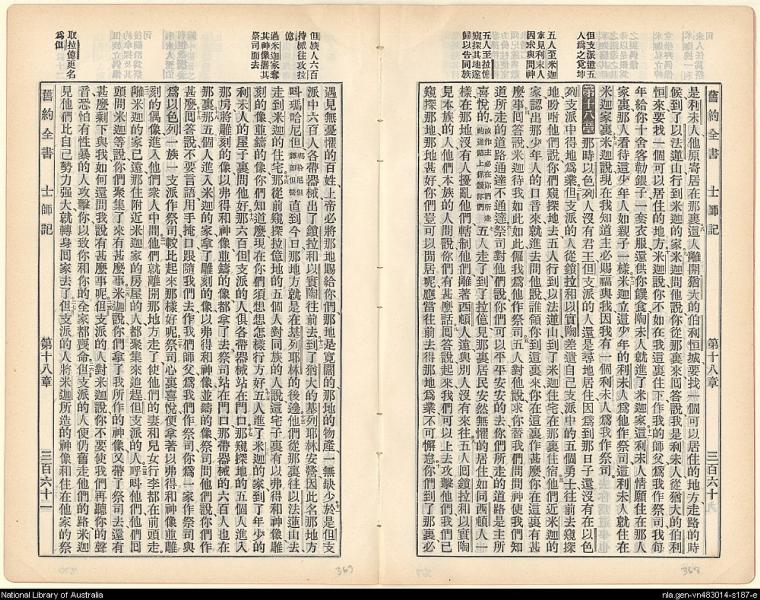 舊約全書 士師記 第十八章 三百六十
但支派遣五
五人至米迦
家見利未人
因求與問神
五人至拉億
窺探其地遂
歸以告同族
是利未人他原寄居在那裏這人離開猶大的伯利恒城要找一個可以居住的地方走路的時
候到了以法蓮山行到米迦的家米迦問他說你從那裏來回答說我是利未人從猶大的伯利
恒來要找一個可以居住的地方米迦說你不如在我這裏住下作我的師父爲我作祭司我每
年給你十舍客勒銀子一套衣服還供你飲食利未人就進了米迦家這利未人情願住在那人
家裏那人看待這少年人如親子一樣米迦立這少年的利未人爲他作祭司這利未人就住在
米迦家裏米迦說現在我知道主必賜福與我因我有一個利未人爲我作祭司
第十八章 那時以色列人沒有君王但支派的人還是尋地居住因爲到那日子還沒有在以色
列支派中得地爲業但支派的人從鎖拉和以實陶差遣自己支派中的五個勇士往前去窺探
地吩咐他們說你們窺探地去五人行到以法蓮山到了米迦住宅在那裏住宿他們近米迦的
家認出那少年人的口音來就進去問他說誰領你到這裏來你在這裏作甚麼你在這裏有甚
麼事回答說米迦待我如此如此僱我爲他作祭司五人對他說求你替我們問問神使我們知
道所走的道路通達不通達祭司對他們說你們可以平平安安的去你們所走的道路是主所
喜悅的 五人走了到了拉億見那裏居民安然無懼的居住如同西頓人一
樣在那地沒有人擾亂他們轄制他們離著西頓人遠與別人沒有來往五人回鎖拉和以實陶
見本族的人他們本族的人問說你們有甚麼話回答說起來我們可以上去攻擊他們我們已
窺探那地那地甚好你們豈可以閒居呢應當往前去得那地爲業不可懈惰你們到了那裏必
但族人六百
持械往攻拉
億
過米迦家奪
其神像攜其
祭司而去
取拉億更名
爲但
遇見無懼惶的百姓上帝必將那地賜給你們那地是寬闊的那地的物產一無缺少於是但支
派中六百人各帶器械出了鎖拉和以實陶往前去到了猶大的基列耶林安營因此名那地方
叫瑪哈尼但 直到今日那地方就是在基列耶林的後邊他們從那裏往以法蓮山去
走到米迦的住宅那從前窺探拉億地的五個人對同族的人說這宅子裏有以弗得和神像雕
刻的像並鑄的像你們知道麼現在你們須想想怎樣行方好五人進了米迦的家到了年少的
利未人的屋子裏問他好那六百但支派的人俱各帶器械站在門口那窺探地的五個人進入
那房將雕刻的像以弗得和神像並鑄的像都拿了去祭司站在門口那帶器械的六百人也在
那裏那五個人進入米迦的家拿了雕刻的像以弗得和神像並鑄的像祭司問他們說你們作
甚麼回答說不要言語用手掩口跟隨我們去作我們師父爲我們作祭司你爲一家作祭司與
爲以色列一族一支派作祭司較比起來那樣好呢祭司心裏喜悅便拿著以弗得和神像並雕
刻的偶像進入他們衆人中間他們就離開那地方走了使他們的妻和兒女行李都在前頭走
離米迦的家已遠那住附近米迦家的房屋的人都聚集來追趕但支派的人呼叫他們他們回
頭問米迦說你們聚集了來有甚麼事米迦說你們拿了我所作的神像又帶了祭司去還有
甚麼剩下與我如何還問我說有甚麼事呢但支派的人對米迦說你不要使我們再聽你的聲
音恐怕有性暴的人攻擊你以致你和你的全家都喪命但支派的人便仍舊走他們的路米迦
見他們比自己勢力強大就轉身回家去了但支派的人將米迦所造的神像和住在他家的祭
舊約全書 士師記 第十八章 三百六十一
National Library of Australia
nla.gen-vn483014-s187-e